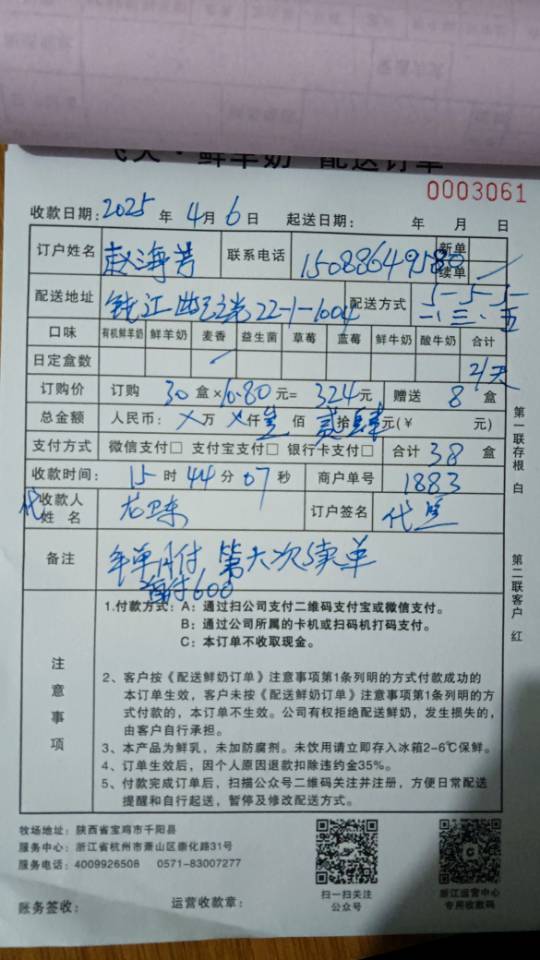 鲜羊奶 配送订单
0003061
收款日期：2025 年 4 月 6 日 起送日期： 年 月 日
订户姓名 赵海芳 联系电话 15088649580 新单 续单 ✓
配送地址 钱江 22-1-1004 配送方式 一 三 五
口味 有机鲜羊奶 鲜羊奶 麦香 益生菌 草莓 蓝莓 鲜牛奶 酸牛奶 合计
日定盒数 ✓ 2/天
订购价 订购 30 盒×10.80 元= 324 元 赠送 8 盒
总金额 人民币： ×万 ×仟 叁 佰 贰 拾 肆 元(￥ 元)
支付方式 微信支付□ 支付宝支付□ 银行卡支付□ 合计 38 盒
收款时间： 15 时 44 分 07 秒 商户单号 1883
代收款人姓名 龙卫东 订户签名 代
备注 年单月付 第六次续单
预付600
注意事项
1.付款方式：A：通过扫公司支付二维码支付宝或微信支付。
B：通过公司所属的卡机或扫码机打码支付。
C：本订单不收取现金。
2、客户按《配送鲜奶订单》注意事项第1条列明的方式付款成功的
本订单生效，客户未按《配送鲜奶订单》注意事项第1条列明的方
式付款的，本订单不生效。公司有权拒绝配送鲜奶，发生损失的，
由客户自行承担。
3、本产品为鲜乳，未加防腐剂。未饮用请立即存入冰箱2-6℃保鲜。
4、订单生效后，因个人原因退款扣除违约金35%。
5、付款完成订单后，扫描公众号二维码关注并注册，方便日常配送
提醒和自行起送，暂停及修改配送方式。
第一联存根 白
第二联客户 红
牧场地址：陕西省宝鸡市千阳县
服务中心：浙江省杭州市萧山区崇化路31号
服务电话：4009926508 0571-83007277
扫一扫关注
公众号
浙江运营中心
专用收款码
账务签收： 运营收款章：